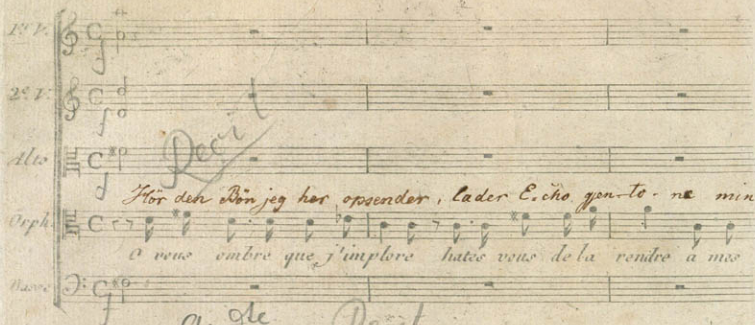 1º V.
2º V.
Recit
Alto
Hör den Bön jeg her opsender, lader Echo gjen-to-ne min
Orph
O vous ombre que j'implore hates vous de la rendre a mes
Basso
Recit